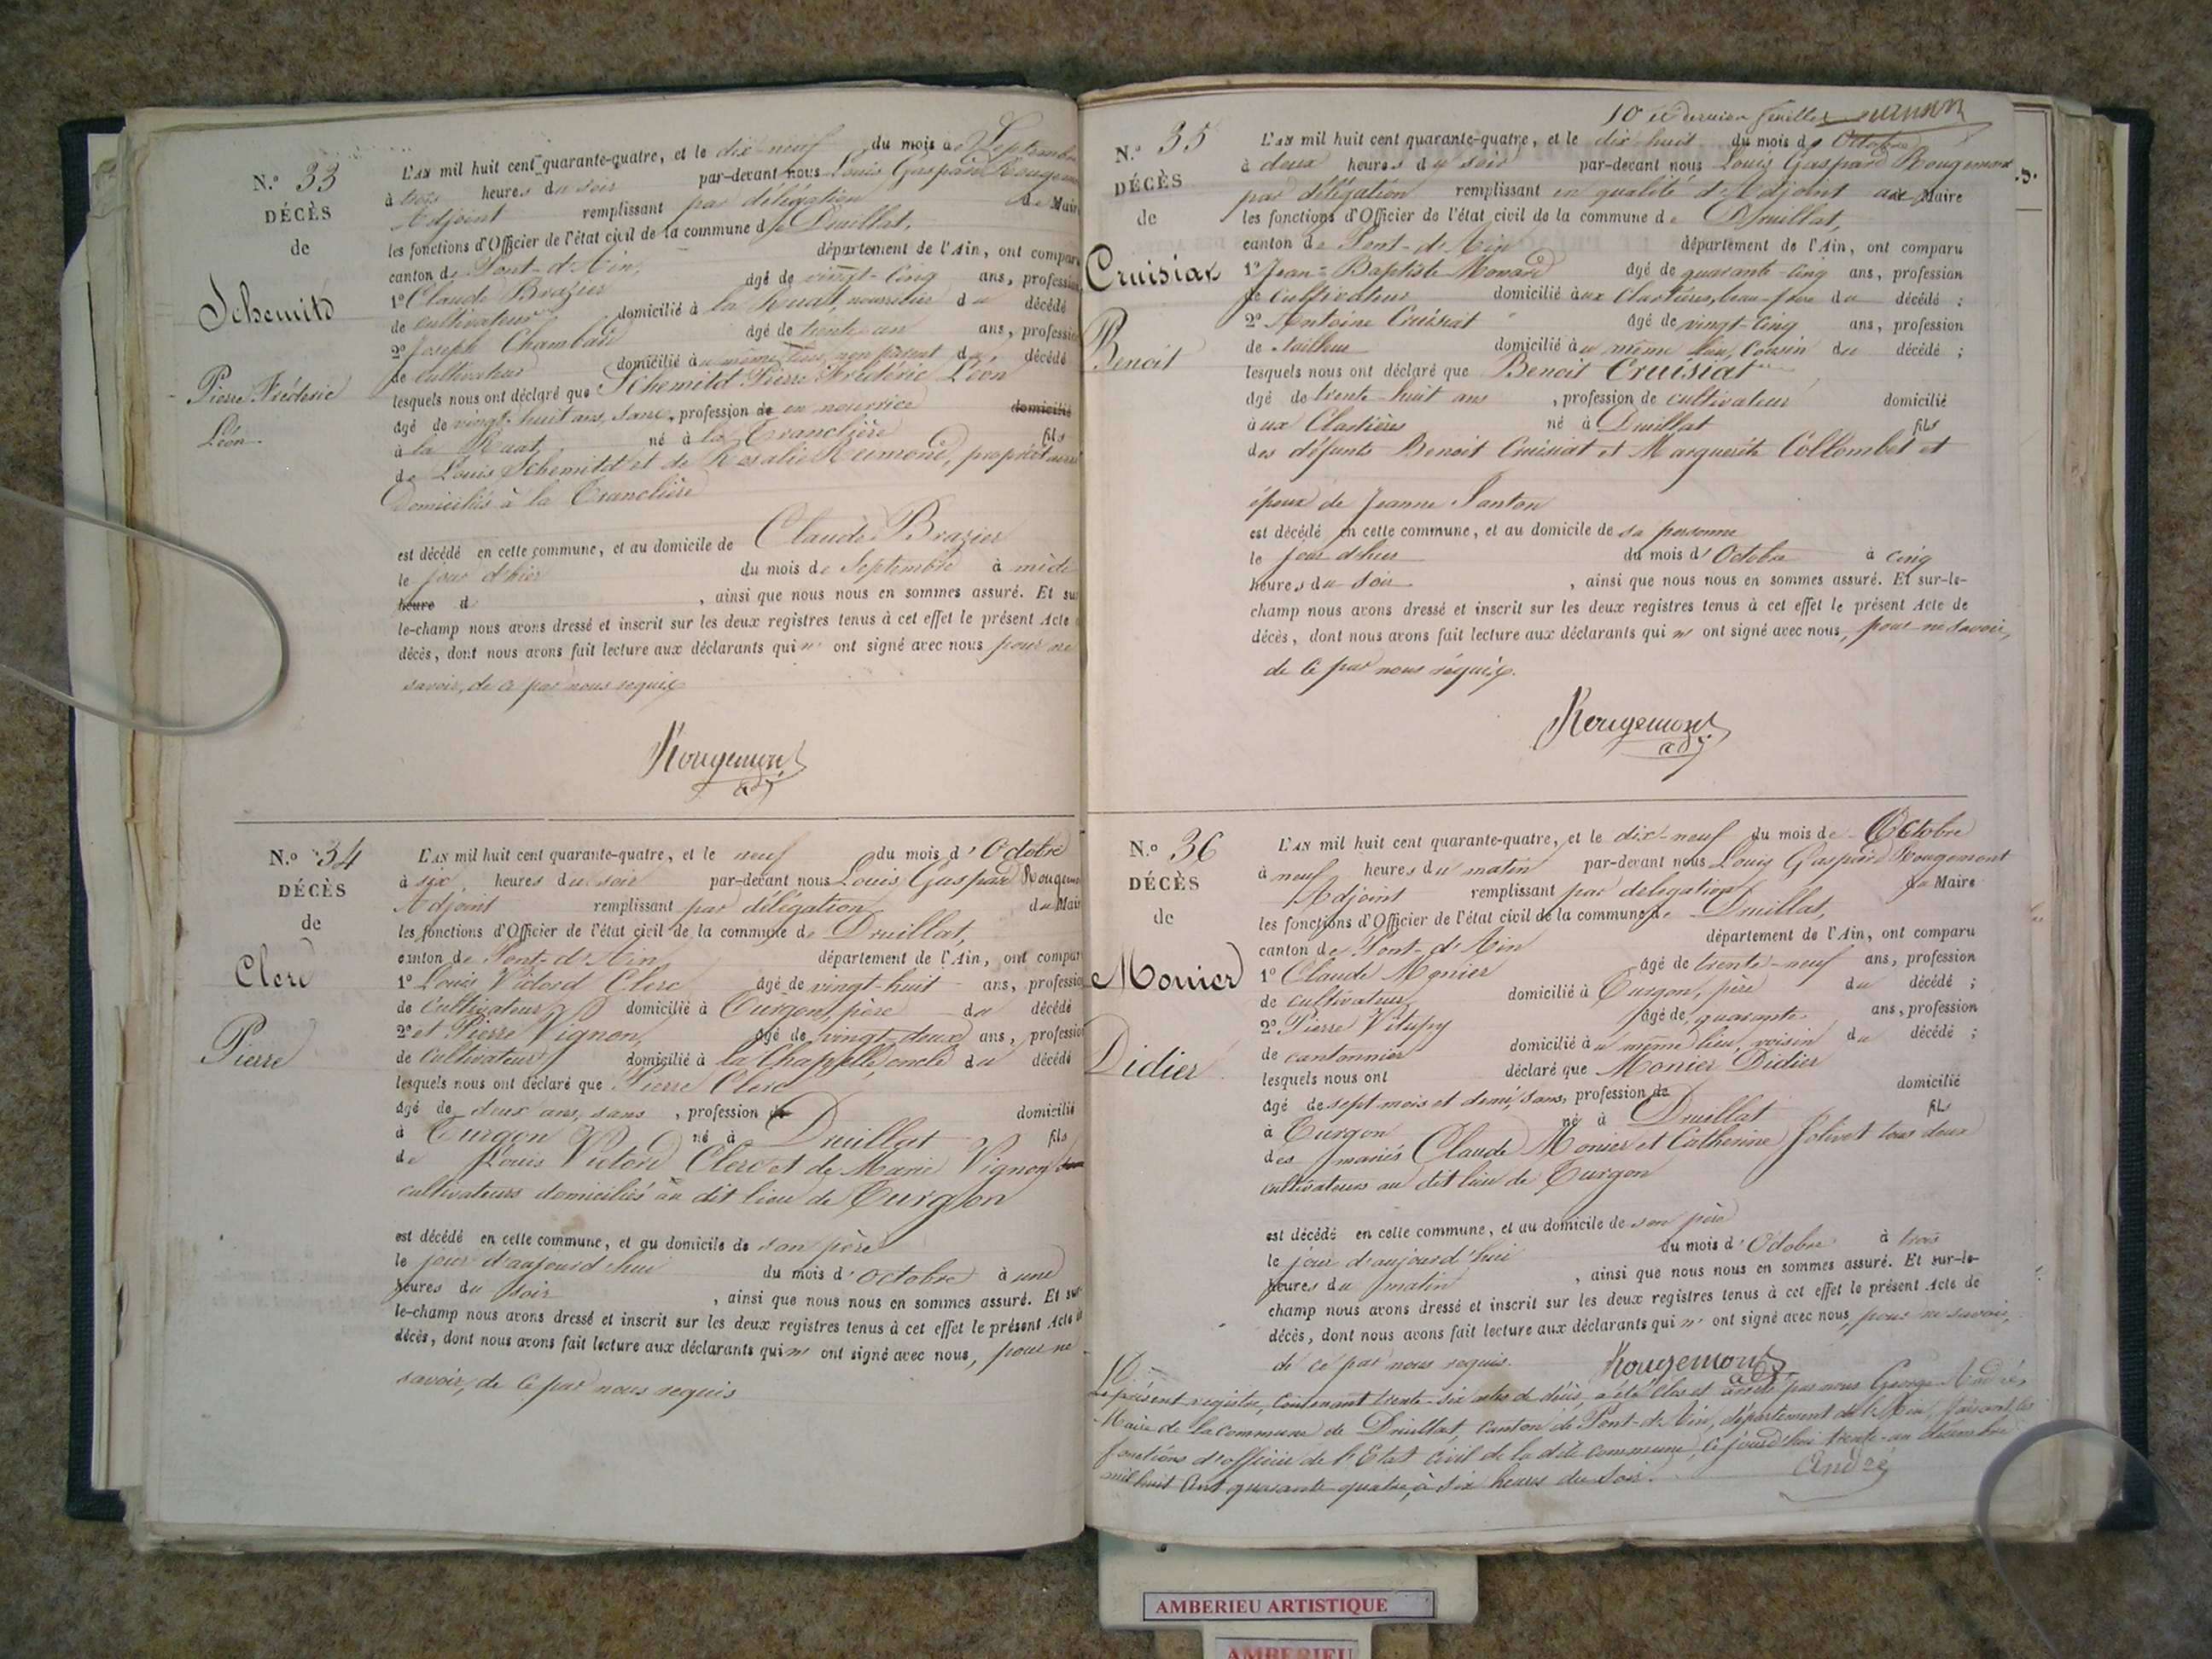 N.º 33
DÉCÈS
de
Schemitd
Pierre Frédéric
Léon
L'AN mil huit cent quarante-quatre, et le dix-neuf du mois de Septembre
à trois heures du soir par-devant nous Louis Gaspard Rougemont
Adjoint remplissant par délégation du Maire
les fonctions d'Officier de l'état civil de la commune de Druillat,
canton de Pont-d'Ain, département de l'Ain, ont comparu
1º Claude Brazier âgé de vingt-cinq ans, profession
de cultivateur domicilié à la Ruat, nourricier du décédé
2º Joseph Chambard âgé de trente-un ans, profession
de cultivateur domicilié au même lieu, non parent du décédé
lesquels nous ont déclaré que Schemitd Pierre Frédéric Léon
âgé de vingt-huit ans, sans, profession de en nourrice domicilié
à la Ruat, né à la Tranclière fils
de Louis Schemitd et de Rosalie Reimond, propriétaires
Domiciliés à la Tranclière
est décédé en cette commune, et au domicile de Claude Brazier
le jour d'hier du mois de Septembre à midi
heure d , ainsi que nous nous en sommes assuré. Et sur
le-champ nous avons dressé et inscrit sur les deux registres tenus à cet effet le présent Acte de
décès, dont nous avons fait lecture aux déclarants qui n' ont signé avec nous pour ne
savoir, de ce par nous requis
Rougemont
adj
N.º 34
DÉCÈS
de
Clerc
Pierre
L'AN mil huit cent quarante-quatre, et le neuf du mois d'Octobre
à six heures du soir par-devant nous Louis Gaspard Rougemont
Adjoint remplissant par délégation du Maire
les fonctions d'Officier de l'état civil de la commune de Druillat,
canton de Pont-d'Ain, département de l'Ain, ont comparu
1º Louis Victord Clerc âgé de vingt-huit ans, profession
de Cultivateur domicilié à Turgon, père du décédé
2º et Pierre Vignon, âgé de vingt deux ans, profession
de Cultivateur domicilié à la Chappelle, oncle du décédé
lesquels nous ont déclaré que Pierre Clerc
âgé de deux ans, sans , profession de domicilié
à Turgon né à Druillat fils
de Louis Victord Clerc et de Marie Vignon
cultivateurs domiciliés au dit lieu de Turgon
est décédé en cette commune, et au domicile de son père
le jour d'aujourd'hui du mois d'Octobre à une
heures du soir , ainsi que nous nous en sommes assuré. Et sur-
le-champ nous avons dressé et inscrit sur les deux registres tenus à cet effet le présent Acte de
décès, dont nous avons fait lecture aux déclarants qui n' ont signé avec nous, pour ne
savoir, de ce par nous requis
10 et dernier feuillet
N.º 35
DÉCÈS
de
Cruisiat
Benoit
L'AN mil huit cent quarante-quatre, et le dix huit du mois d'Octobre
à deux heures du soir par-devant nous Louis Gaspard Rougemont
par délégation remplissant en qualité d'Adjoint au Maire
les fonctions d'Officier de l'état civil de la commune de Druillat,
canton de Pont-d'Ain département de l'Ain, ont comparu
1º Jean-Baptiste Monard âgé de quarante-cinq ans, profession
de Cultivateur domicilié aux Clartières, beau-frère du décédé ;
2º Antoine Cruisiat âgé de vingt-cinq ans, profession
de tailleur domicilié au même lieu, Cousin du décédé ;
lesquels nous ont déclaré que Benoit Cruisiat
âgé de trente-huit ans , profession de cultivateur domicilié
aux Clartières né à Druillat fils
des défunts Benoit Cruisiat et Marguerite Collombet et
époux de Jeanne Janton
est décédé en cette commune, et au domicile de sa personne
le jour d'hier du mois d'Octobre à cinq
heures du soir , ainsi que nous nous en sommes assuré. Et sur-le-
champ nous avons dressé et inscrit sur les deux registres tenus à cet effet le présent Acte de
décès, dont nous avons fait lecture aux déclarants qui n' ont signé avec nous, pour ne savoir,
de ce par nous requis.
Rougemont
adj
N.º 36
DÉCÈS
de
Monier
Didier
L'AN mil huit cent quarante-quatre, et le dix-neuf du mois de Octobre
à neuf heures du matin par-devant nous Louis Gaspard Rougemont
Adjoint remplissant par délégation du Maire
les fonctions d'Officier de l'état civil de la commune de Druillat,
canton de Pont-d'Ain département de l'Ain, ont comparu
1º Claude Monier âgé de trente-neuf ans, profession
de cultivateur domicilié à Turgon, père du décédé ;
2º Pierre Vitupy âgé de quarante ans, profession
de cantonnier domicilié au même lieu, voisin du décédé ;
lesquels nous ont déclaré que Monier Didier
âgé de sept mois et demi, sans, profession de domicilié
à Turgon né à Druillat fils
des mariés Claude Monier et Catherine Jolivet tous deux
cultivateurs au dit lieu de Turgon
est décédé en cette commune, et au domicile de son père
le jour d'aujourd'hui du mois d'Octobre à trois
heures du matin , ainsi que nous nous en sommes assuré. Et sur-le-
champ nous avons dressé et inscrit sur les deux registres tenus à cet effet le présent Acte de
décès, dont nous avons fait lecture aux déclarants qui n' ont signé avec nous, pour ne savoir,
de ce par nous requis. Rougemont
adj
Le présent registre, contenant trente-six actes de décès, a été clos et arrêté par nous George André,
Maire de la commune de Druillat, canton de Pont-d'Ain, département de l'Ain, faisant les
fonctions d'officier de l'Etat civil de la dite commune, ce jourd'hui trente-un décembre
mil huit cent quarante-quatre, à six heures du soir. André
AMBERIEU ARTISTIQUE
AMBERIEU